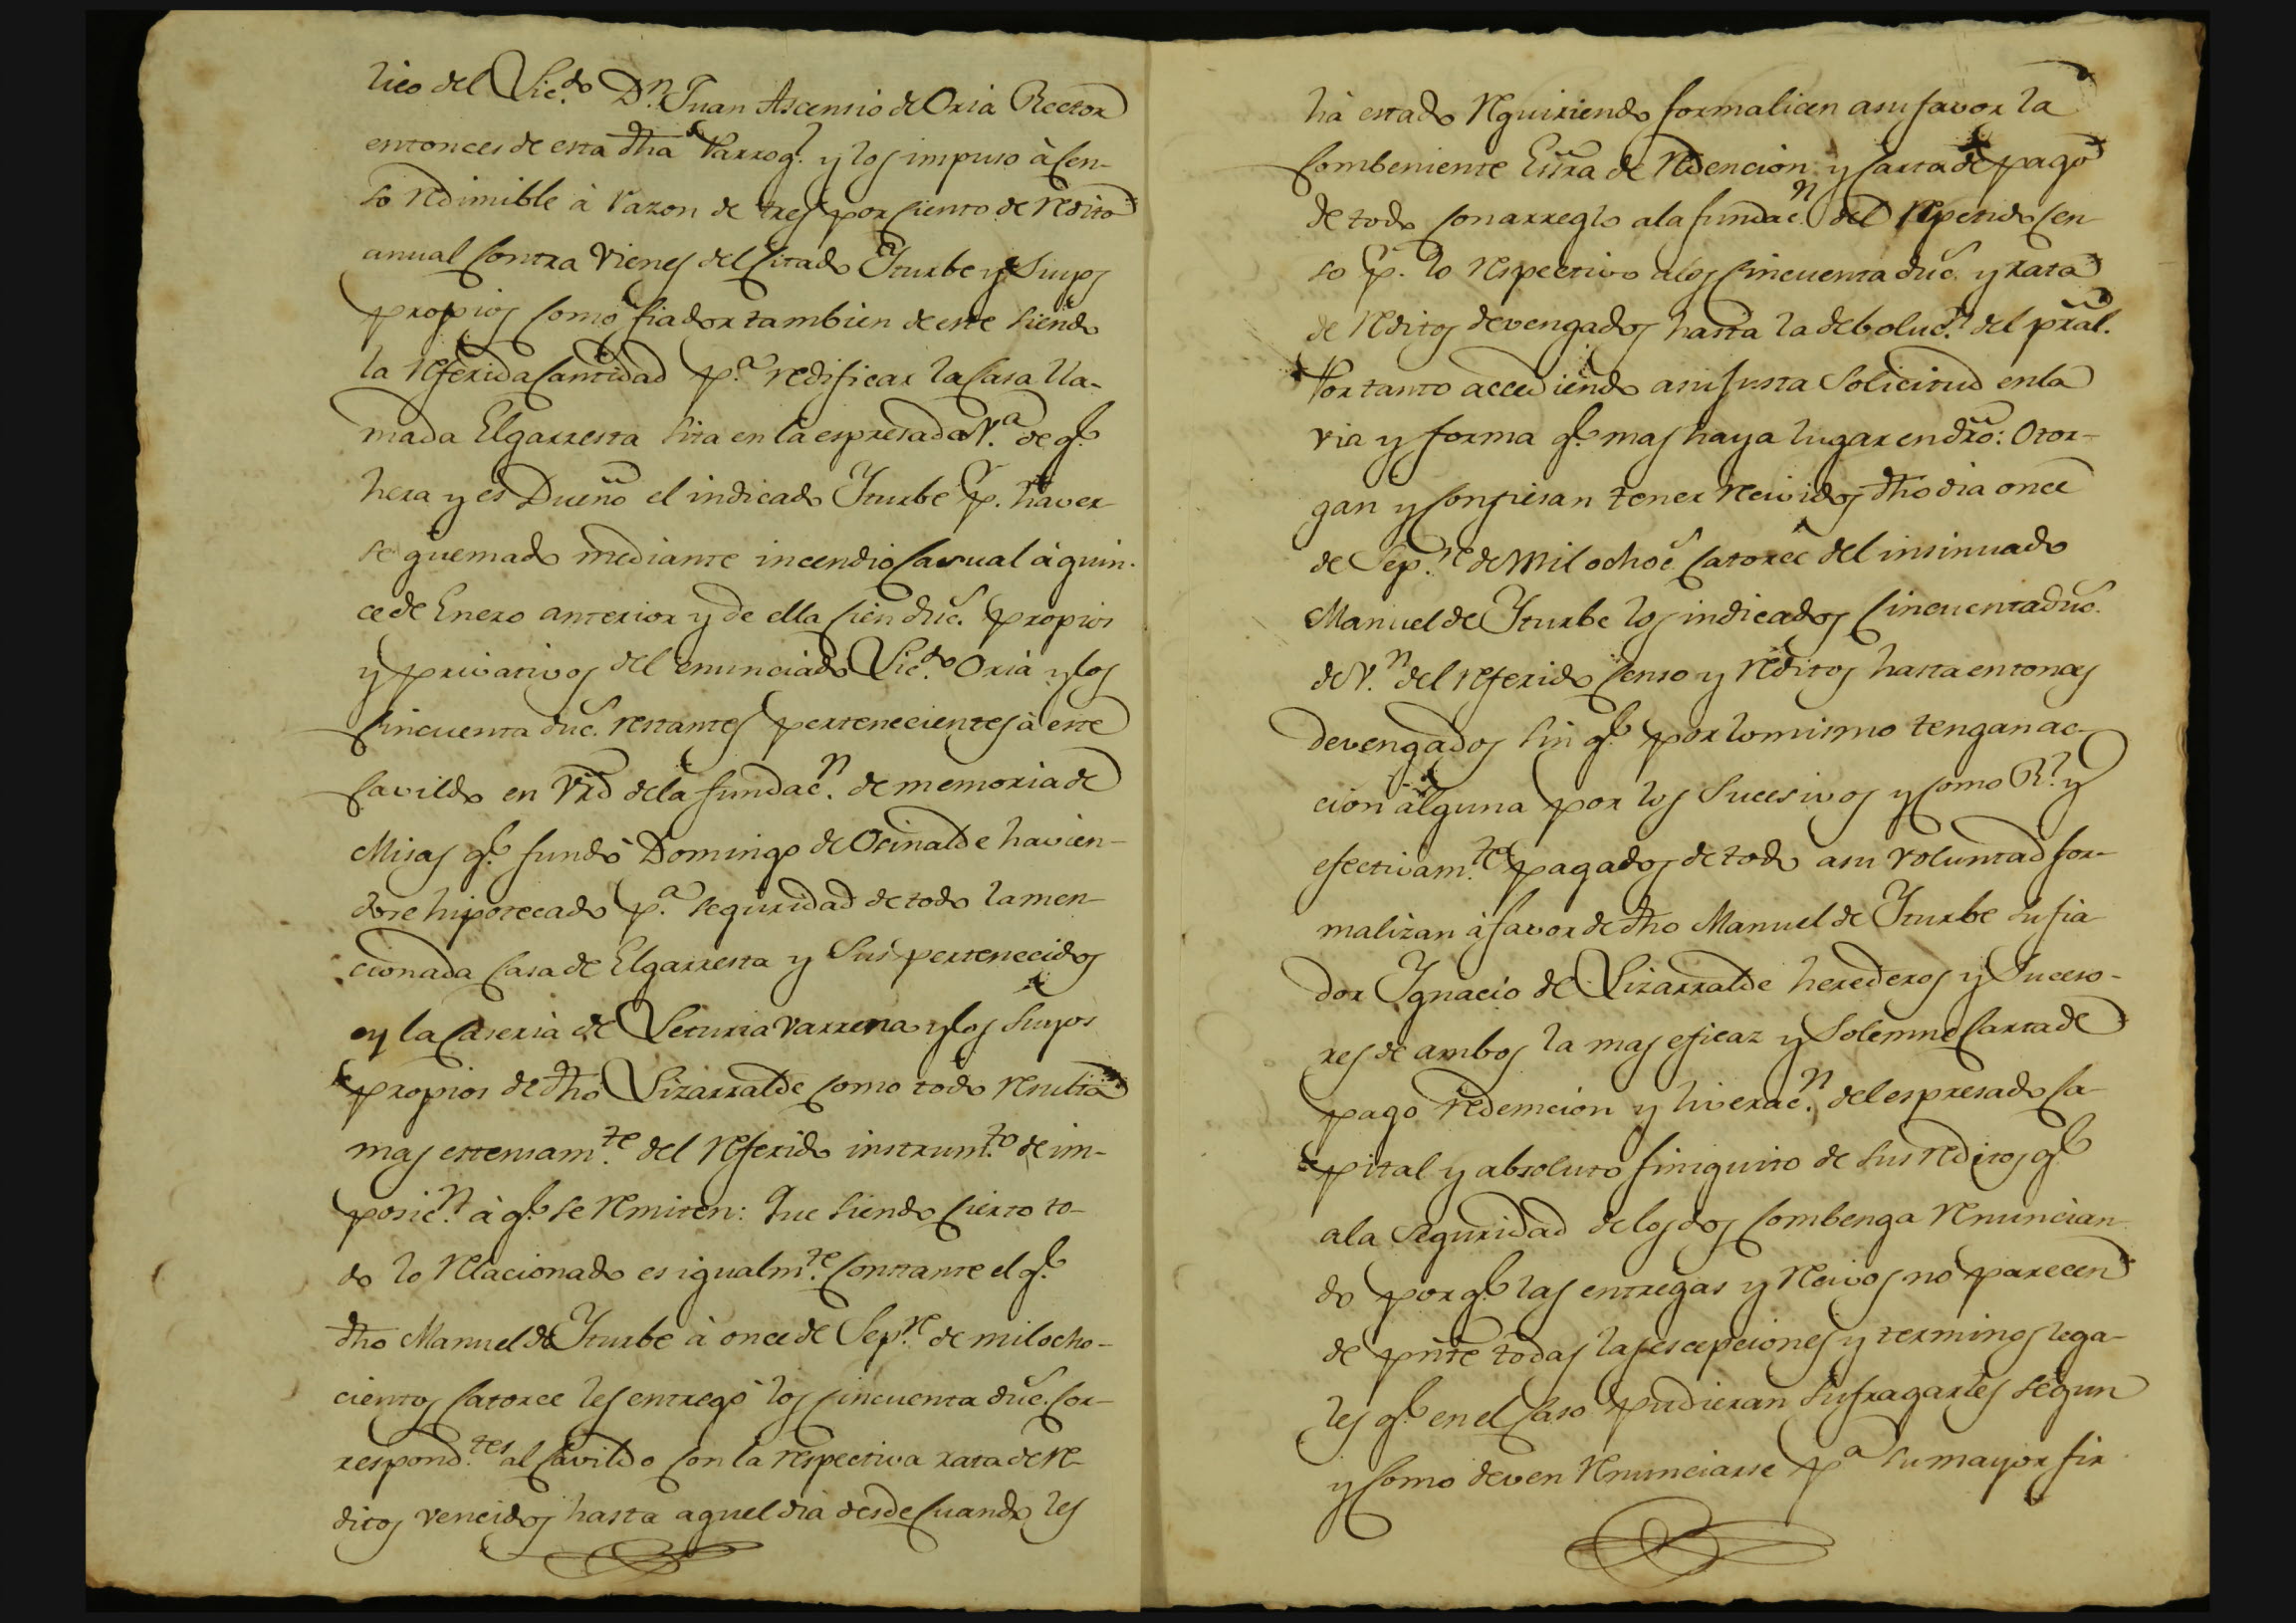 lico del Lic.do D.n Juan Ascensio de Oria Rector
entonces de esta dha Parroq.l y los impuso à Cen-
so redimible à razon de tres por ciento de redito
anual contra vienes del citado Yturbe y Suyos
propios como fiador tambien de este siendo
la referida Cantidad p.a redificar la Casa lla-
mada Elgarresta sita en la espresada V.a de q.e
hera y es Dueño el indicado Yturbe p.r haver
se quemado mediante incendio Casual à quin-
ce de Enero anterior y de ella cien duc.s propios
y privativos del enunciado Lic.do Oria y los
cincuenta duc.s restantes pertenecientes à este
Cavildo en Vrd dela fundac.n de memoria de
Misas q.e fundó Domingo de Osinalde havien-
dose hipotecado p.a seguridad de todo la men-
cionada Casa de Elgarresta y sus pertenecidos
y la Caseria de Leturiavarrena y los suyos
propios de dho Lizarralde como todo resulta
mas estensam.te del referido instrum.to de im-
posic.n à q.e se remiten: Que siendo cierto to-
do lo relacionado es igualm.te constante el q.e
dho Manuel de Yturbe à once de Sep.re de mil ocho-
cientos catorce les entregó los cincuenta duc.s cor-
respond.tes al Cavildo con la respectiva rata de re-
ditos vencidos hasta aquel dia desde cuando les
hà estado requiriendo formalicen asu favor la
combeniente Essra de redencion y carta de pago
de todo con arreglo ala fundac.n del repetido cen-
so p.r lo respectivo alos cincuenta duc.s y rata
de reditos devengados hasta la deboluc.n del pral.
Por tanto accediendo asu justa solicitud en la
via y forma q.e mas haya lugar en dro: Otor-
gan y confiesan tener recividos dho dia once
de Sep.re de mil ochoc.s catorce del insinuado
Manuel de Yturbe los indicados cincuenta duc.s
de V.n del referido censo y reditos hasta entonces
devengados sin q.e por lo mismo tengan ac-
cion alguna por los sucesivos y como R.l y
efectivam.te pagados de todo asu voluntad for-
malizan à favor de dho Manuel de Yturbe su fia-
dor Ygnacio de Lizarralde herederos y suceso-
res de ambos la mas eficaz y solemne carta de
pago redemcion y liverac.n del espresado ca-
pital y absoluto finiquito de sus reditos q.e
ala seguridad de los dos combenga renuncian-
do por q.e las entregas y recivos no parecen
de pnte todas las escepciones y terminos lega-
les q.e en el caso pudieran sufragarles segun
y como deven renunciarse p.a su mayor fir